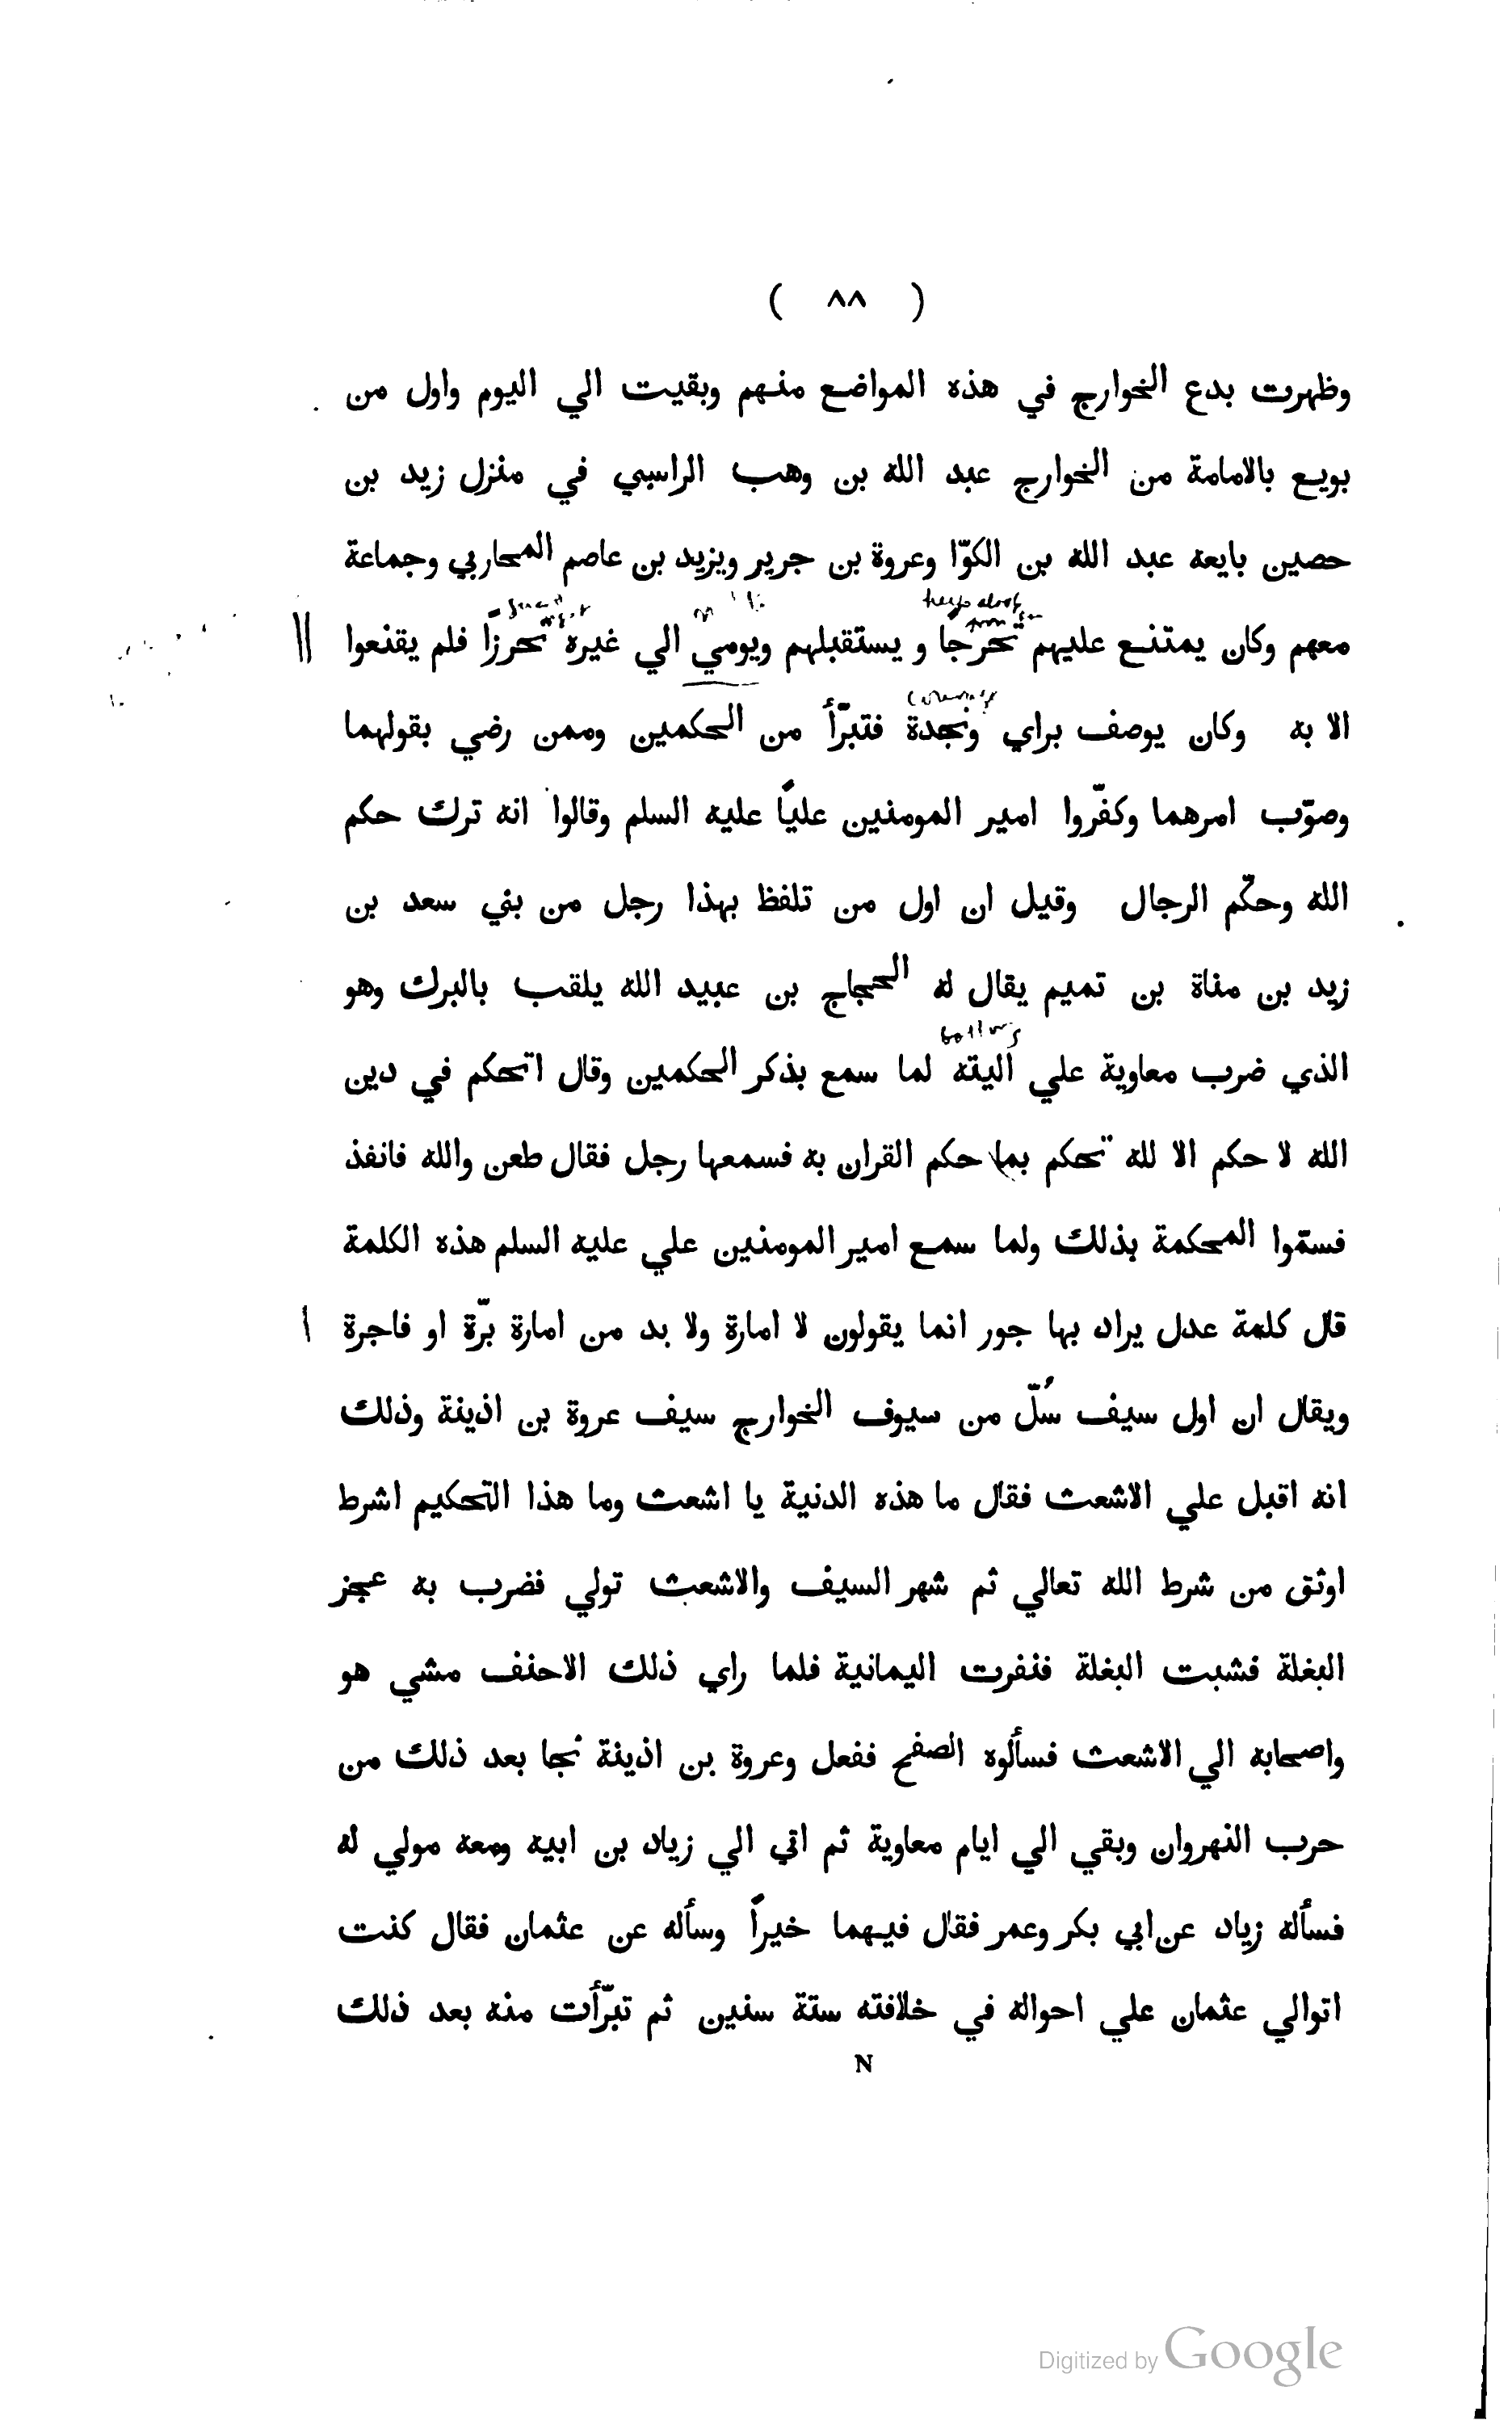 ( ٨٨ )
وظهرت بدع الخوارج في هذه المواضع منهم وبقيت الي اليوم واول من
بويع بالامامة من الخوارج عبد الله بن وهب الراسبي في منزل زيد بن
حصين بايعه عبد الله بن الكوّا وعروة بن جرير ويزيد بن عاصم المحاربي وجماعة
keep aloof from
معهم وكان يمتنع عليهم تحرجا و يستقبلهم ويومي الي غيره تحرزًا فلم يقنعوا
الا به وكان يوصف براي ونجدة فتبرّأ من الحكمين وممن رضي بقولهما
وصوّب امرهما وكفّروا امير المومنين عليًا عليه السلم وقالوا انه ترك حكم
الله وحكّم الرجال وقيل ان اول من تلفظ بهذا رجل من بني سعد بن
زيد بن مناة بن تميم يقال له الحجاج بن عبيد الله يلقب بالبرك وهو
الذي ضرب معاوية علي اليته لما سمع بذكر الحكمين وقال اتحكم في دين
الله لا حكم الا لله تحكم بما حكم القران به فسمعها رجل فقال طعن والله فانفذ
فسمّوا المحكمة بذلك ولما سمع امير المومنين علي عليه السلم هذه الكلمة
قال كلمة عدل يراد بها جور انما يقولون لا امارة ولا بد من امارة برّة او فاجرة
ويقال ان اول سيف سُلّ من سيوف الخوارج سيف عروة بن اذينة وذلك
انه اقبل علي الاشعث فقال ما هذه الدنية يا اشعث وما هذا التحكيم اشرط
اوثق من شرط الله تعالي ثم شهر السيف والاشعث تولي فضرب به عجز
البغلة فشبت البغلة فنفرت اليمانية فلما راي ذلك الاحنف مشي هو
واصحابه الي الاشعث فسألوه الصفح ففعل وعروة بن اذينة نجا بعد ذلك من
حرب النهروان وبقي الي ايام معاوية ثم اتي الي زياد بن ابيه ومعه مولي له
فسأله زياد عن ابي بكر وعمر فقال فيهما خيرًا وسأله عن عثمان فقال كنت
اتوالي عثمان علي احواله في خلافته ستة سنين ثم تبرّأت منه بعد ذلك
N
Digitized by Google